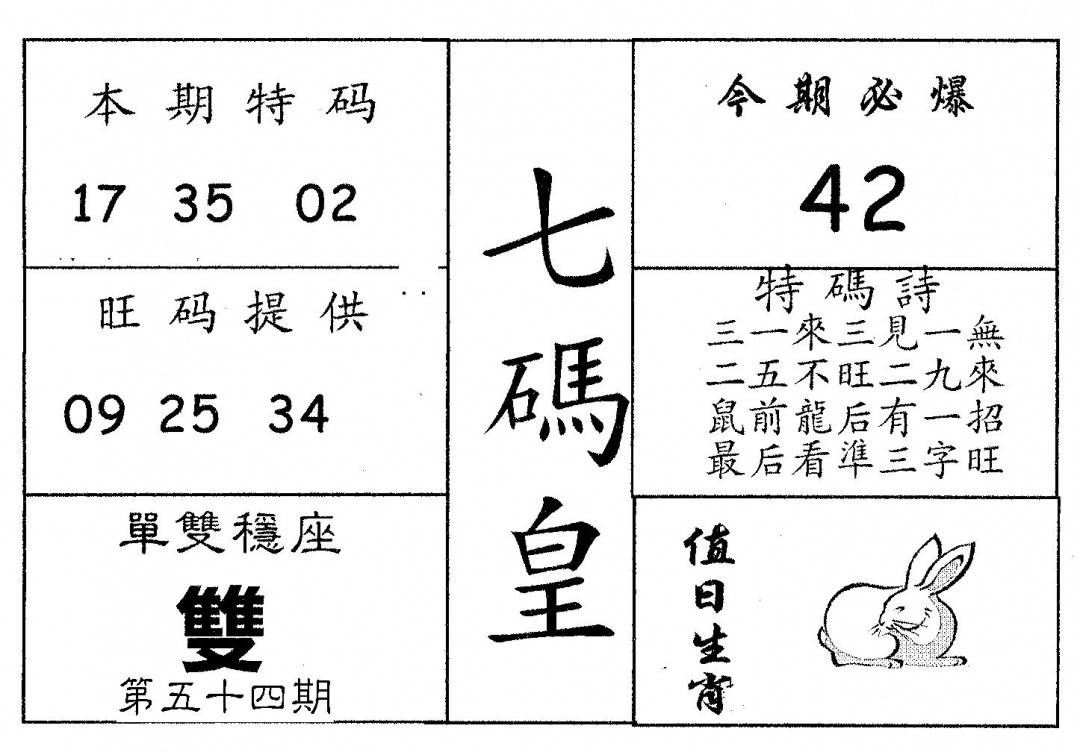 本期特码
17 35 02
旺码提供
09 25 34
單雙穩座
雙
第五十四期
七碼皇
今期必爆
42
特碼詩
三一來三見一無
二五不旺二九來
鼠前龍后有一招
最后看準三字旺
值日生肖